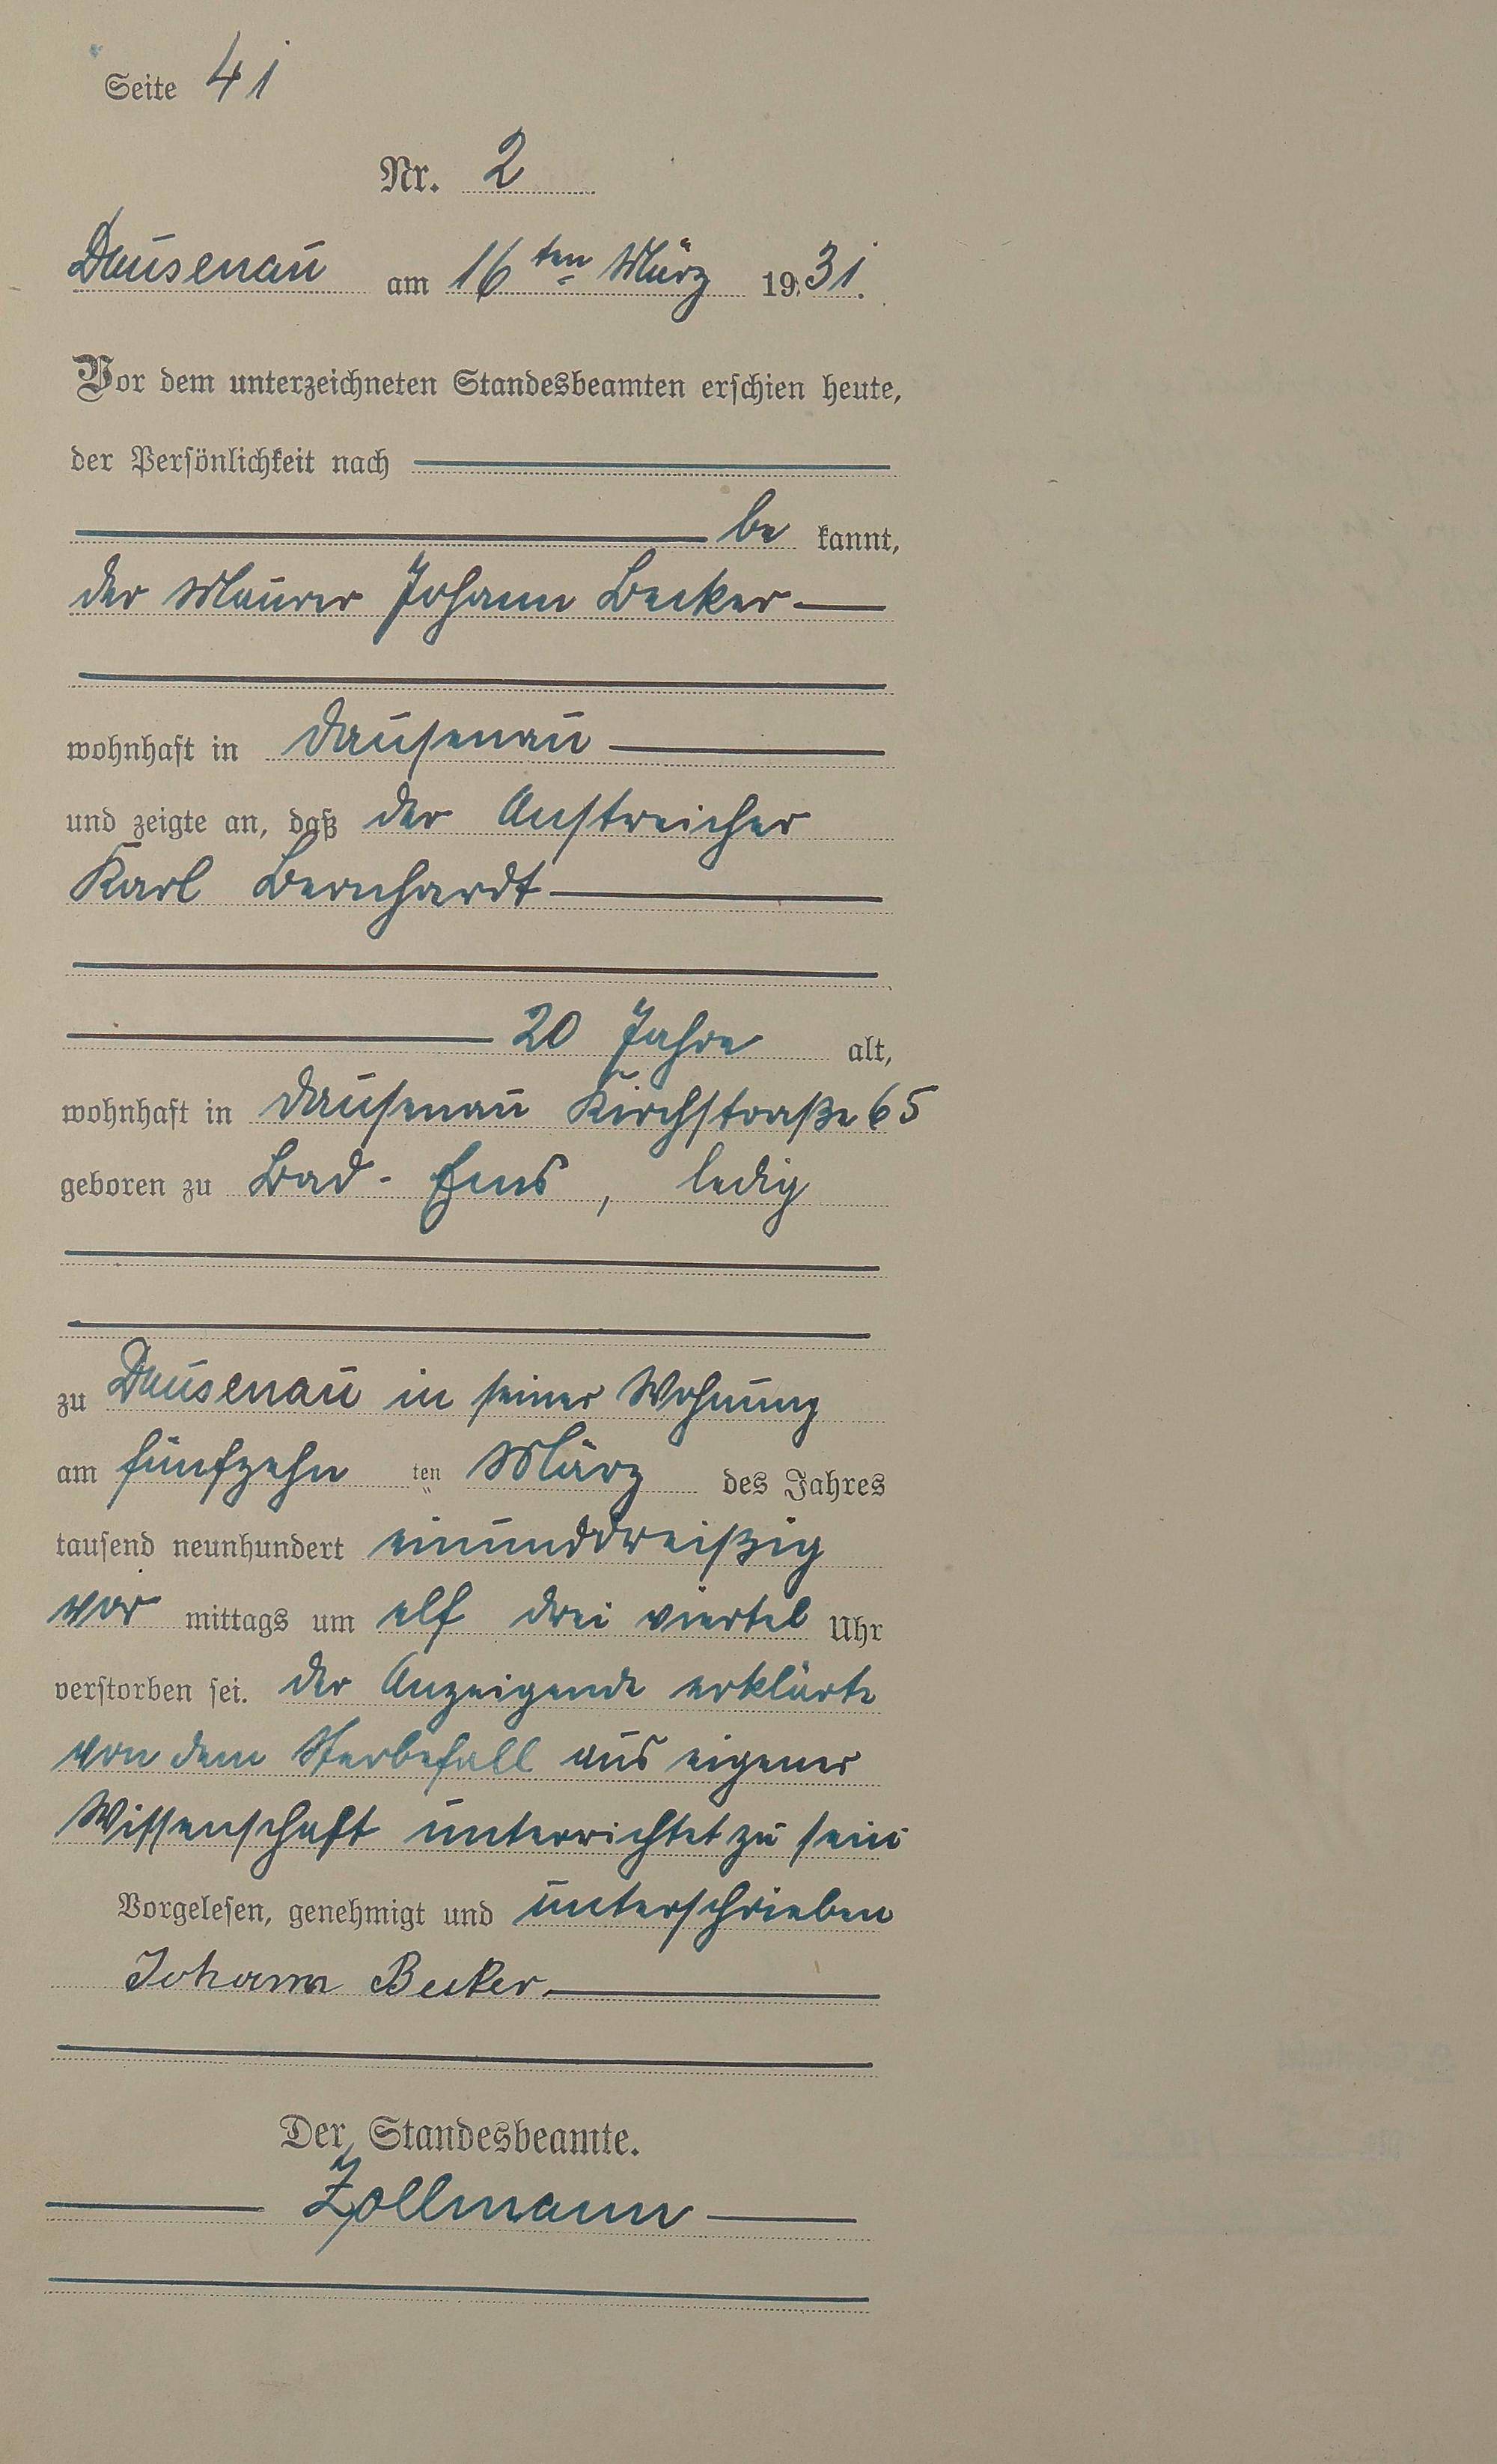 Seite 41
Nr. 2
Dausenau am 16ten März 1931.
Vor dem unterzeichneten Standesbeamten erschien heute,
der Persönlichkeit nach
be kannt,
der Maurer Johann Becker
wohnhaft in Dausenau
und zeigte an, daß der Anstreicher
Karl Bernhardt
20 Jahre alt,
wohnhaft in Dausenau Kirchstraße 65
geboren zu Bad-Ems, ledig
zu Dausenau in seiner Wohnung
am fünfzehn ten März des Jahres
tausend neunhundert einunddreißig
vor mittags um elf drei viertel Uhr
verstorben sei. Der Anzeigende erklärte
von dem Sterbefall aus eigener
Wissenschaft unterrichtet zu sein
Vorgelesen, genehmigt und unterschrieben
Johann Becker
Der Standesbeamte.
Zollmann